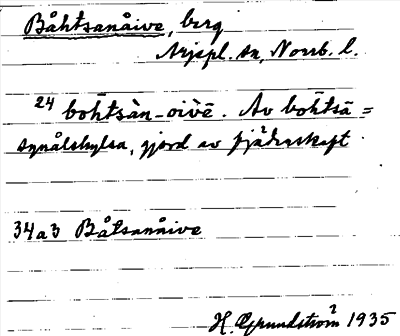 Båhtsanåive, berg
Arjepl. sn, Norrb. l.
24 bohtsàn-oivē. Av bohtsā =
synålshylsa, gjord av fjäderskaft.
34a3 Båtsanåive
H. Grundström 1935